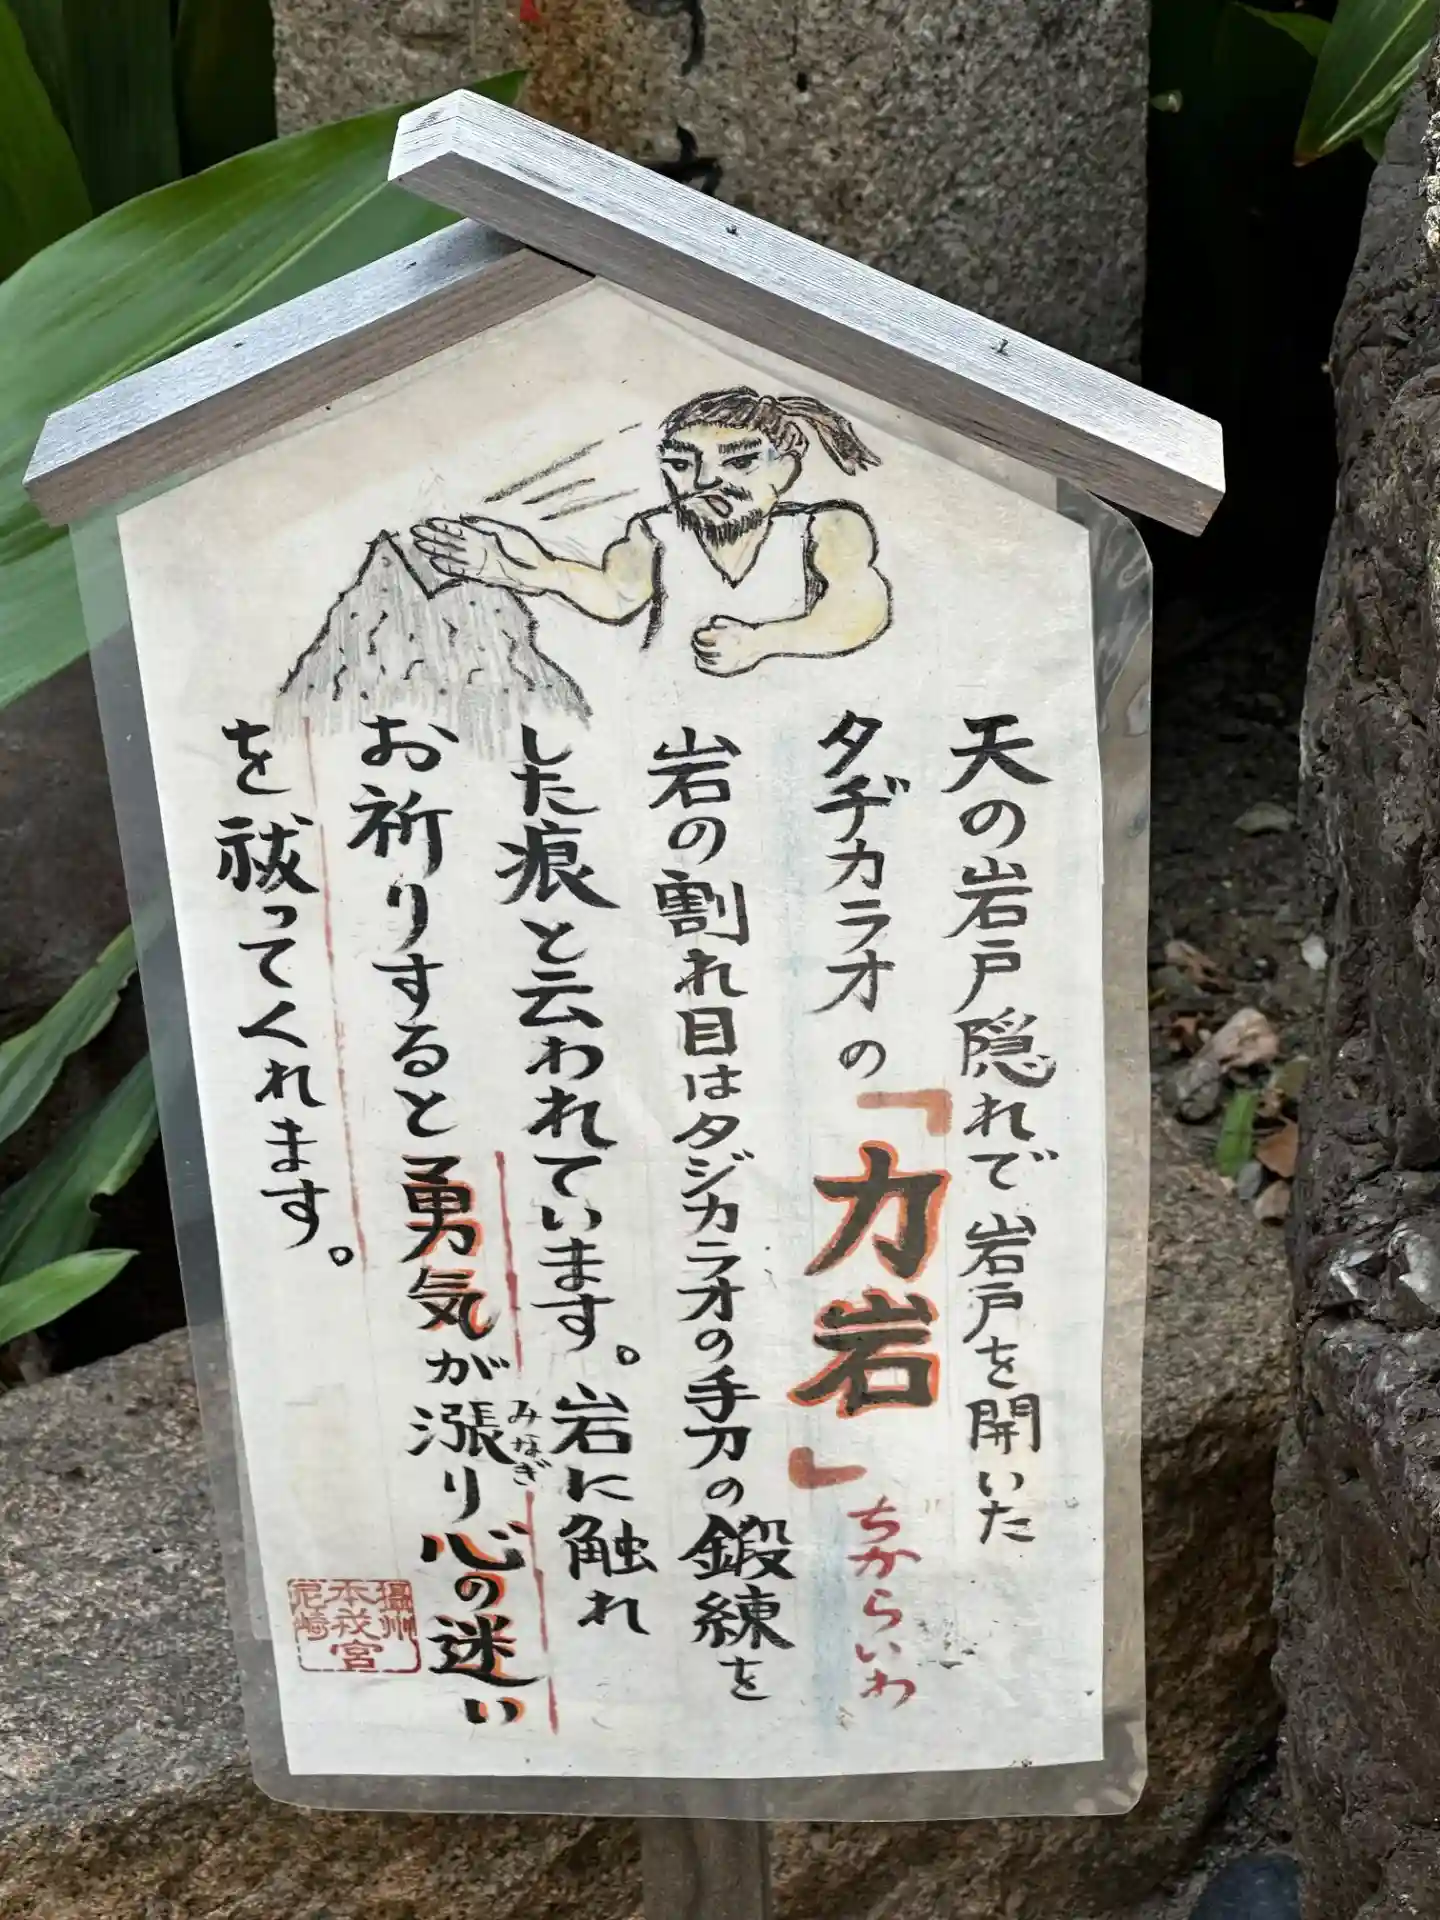 天の岩戸隠れで岩戸を開いた
タヂカラオの「力岩」
ぢからいわ
岩の割れ目はタジカラオの手刀の鍛練を
した痕と云われています。岩に触れ
お祈りすると勇気が漲り心の迷い
みなぎ
を祓ってくれます。
攝州
本戎宮
尼崎